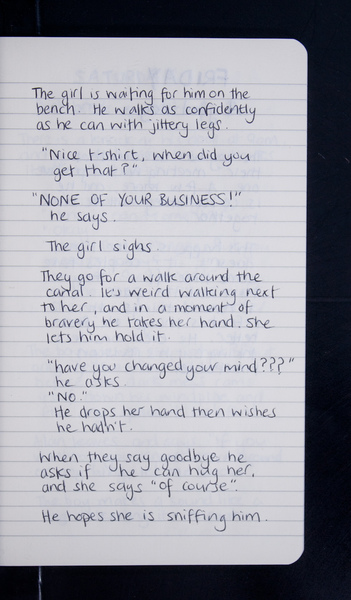 The girl is waiting for him on the
bench. He walks as confidently
as he can with jittery legs.
"Nice t-shirt, when did you
get that?"
"NONE OF YOUR BUSINESS!"
he says.
The girl sighs.
They go for a walk around the
canal. It's weird walking next
to her, and in a moment of
bravery he takes her hand. She
lets him hold it.
"have you changed your mind???"
he asks.
"No."
He drops her hand then wishes
he hadn't.
When they say goodbye he
asks if he can hug her,
and she says "of course".
He hopes she is sniffing him.